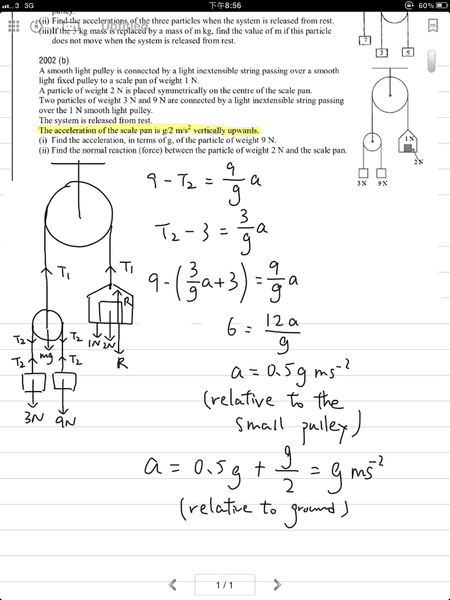 3 3G 下午8:56 60%
pulley.
(ii) Find the accelerations of the three particles when the system is released from rest.
(iii)If the 3 kg mass is replaced by a mass of m kg, find the value of m if this particle
does not move when the system is released from rest.
Untitled
2002 (b)
A smooth light pulley is connected by a light inextensible string passing over a smooth
light fixed pulley to a scale pan of weight 1 N.
A particle of weight 2 N is placed symmetrically on the centre of the scale pan.
Two particles of weight 3 N and 9 N are connected by a light inextensible string passing
over the 1 N smooth light pulley.
The system is released from rest.
The acceleration of the scale pan is g/2 m/s² vertically upwards.
(i) Find the acceleration, in terms of g, of the particle of weight 9 N.
(ii) Find the normal reaction (force) between the particle of weight 2 N and the scale pan.
1 N
2 N
3 N 9 N
9 - T₂ = 9/g a
T₂ - 3 = 3/g a
9 - (3/g a + 3) = 9/g a
6 = 12a/g
a = 0.5g ms⁻²
(relative to the
small pulley)
a = 0.5g + g/2 = g ms⁻²
(relative to ground)
T₁ T₁
R
T₂ mg T₂ 1N 2N R
T₂ T₂
3N 9N
1 / 1